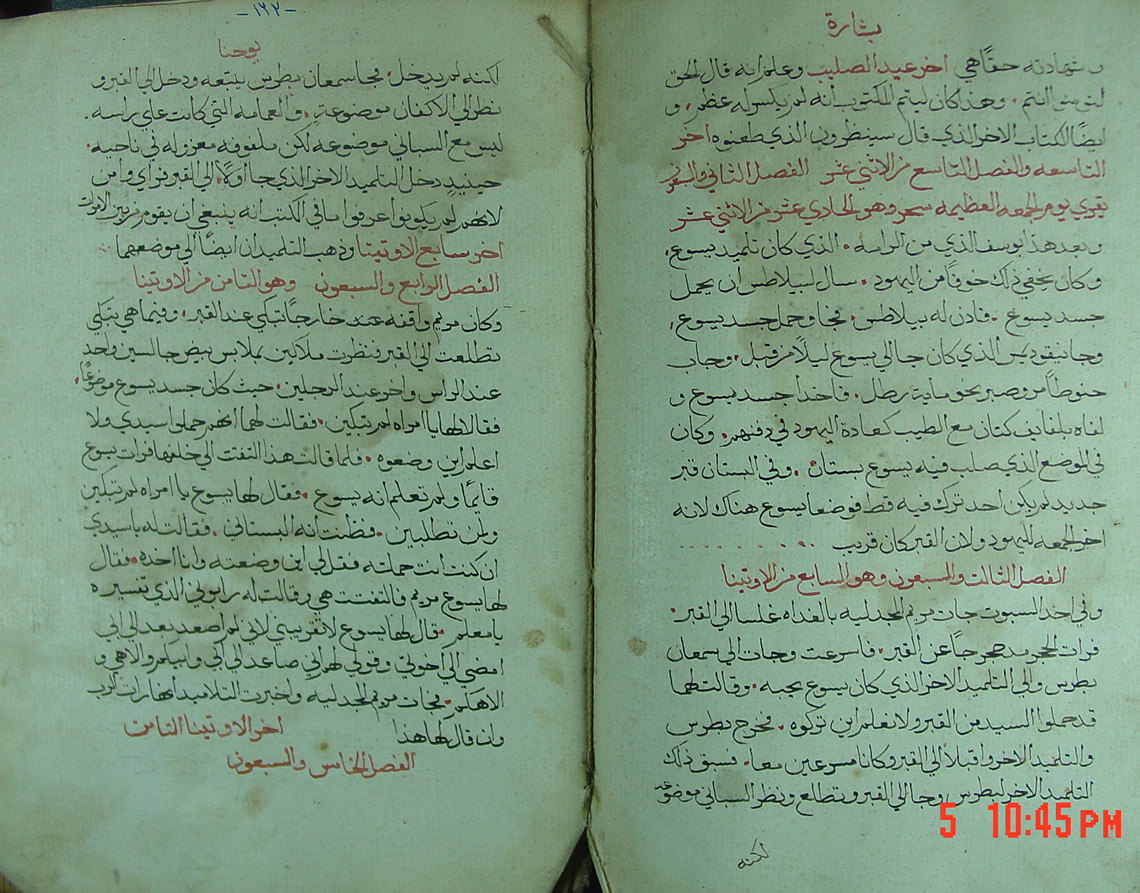 بشارة
وشهادته حقا هي اخر عيد الصليب وعلم انه قال الحق
لتومنوا انتم. وهذا كان ليتم المكتوب انه لم يكسر له عظم. و
ايضا الكتاب الاخر الذي قال سينظرون الذي طعنوه اخر
التاسعه والفصل التاسع من الاثني عشر الفصل الثاني والسبعون
يقري يوم الجمعه العظيمه سحر وهو الحادي عشر من الاثني عشر
وبعد هذا يوسف الذي من الرامه. الذي كان تلميد يسوع.
وكان يخفي ذلك خوفا من اليهود. سال لبيلاطس ان يحمل
جسد يسوع. فادن له بيلاطس. فجا وحمل جسد يسوع.
وجا نيقوديمس الذي كان جا الي يسوع ليلا من قبل. وجاب
حنوطا مر وصبر نحو ماية رطل. فاخدا جسد يسوع و
لفاه بلفايف كتان مع الطيب كعادة اليهود في دفنهم. وكان
في الموضع الذي صلب فيه يسوع بستان. وفي البستان قبر
جديد لم يكن احد ترك فيه قط فوضعا يسوع هناك لانه
اخر الجمعه لليهود ولان القبر كان قريب
الفصل الثالت والسبعون وهو السابع من الاوتينا
وفي احد السبوت جات مريم المجدليه بالغداه غلسا الي القبر.
فرات الحجر مدحرجا عن القبر. فاسرعت وجات الي سمعان
بطرس والي التلميد الاخر الذي كان يسوع يحبه. وقالت لهما
قد حملوا السيد من القبر ولا نعلم اين تركوه. فخرج بطرس
والتلميد الاخر واقبلا الي القبر وكانا مسرعين معا. فسبق ذلك
التلميد الاخر لبطرس وجا الي القبر وتطلع ونظر السباني موضوعه
لكنه
-١٦٢-
يوحنا
لكنه لم يدخل. فجا سمعان بطرس يتبعه ودخل الي القبر و
نظر الي الاكفان موضوعة. والعمامه التي كانت علي راسه.
ليس مع السباني موضوعه لكن ملفوفه معزوله في ناحيه.
حينيد دخل التلميد الاخر الذي جا اولا الي القبر فراي وامن
لانهم لم يكونوا عرفوا ما في الكتب انه ينبغي ان يقوم من بين الاموات
اخر سابع الاوتينا وذهب التلميدان ايضا الي موضعهما
الفصل الرابع والسبعون وهو التامن من الاوتينا
وكان مريم واقفه عند خارجا تبكي عند القبر. وفيما هي تبكي
تطلعت الي القبر فنظرت ملاكين بملابس بيض جالسين واحد
عند الراس واخر عند الرجلين. حيث كان جسد يسوع موضوعا.
فقالا لها يا امراه لم تبكين. فقالت لهما انهم حملوا سيدي ولا
اعلم اين وضعوه. فلما قالت هذا التفتت الي خلفها فرات يسوع
قايما ولم تعلم انه يسوع. فقال لها يسوع يا امراه لم تبكين
ولمن تطلبين. فظنت انه البستاني. فقالت له يا سيدي
ان كنت انت حملته فقل لي اين وضعته وانا اخده. فقال
لها يسوع مريم والتفتت هي وقالت له رابوني الذي تفسيره
يا معلم. قال لها يسوع لا تقربيني لاني لم اصعد بعد الي ابي
امضي الي اخوتي وقولي لهم اني صاعد الي ابي وابيكم والاهي و
الاهكم. فجات مريم المجدليه واخبرت التلاميد انها رات الرب
وان قال لها هذا اخر الاوتينا التامن
الفصل الخامس والسبعون
5 10:45 PM